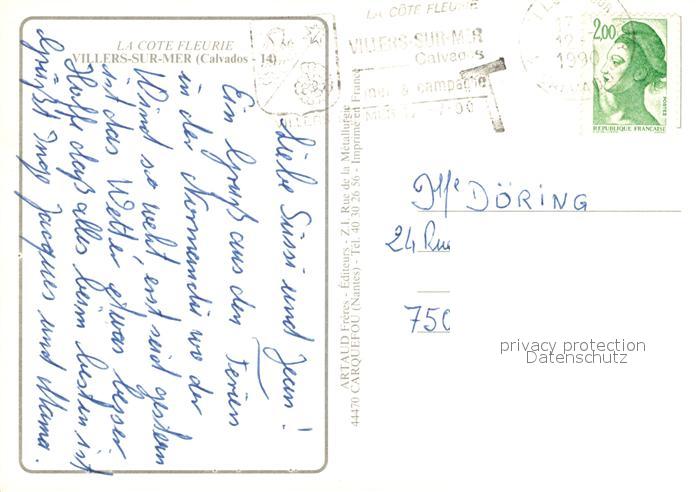 LA COTE FLEURIE
VILLERS-SUR-MER (Calvados - 14)
Liebe Sussi und Jean!
Ein Gruß aus den Ferien
in der Normandie wo der
Wind so weht, erst seid gestern
ist das Wetter etwas besser
Hoffe daß alles beim besten ist
Grüßt Inge Jacques und Mama.
ARTAUD Frères - Éditeurs - Z.I. Rue de la Métallurgie
44470 CARQUEFOU (Nantes) - Tél. 40 30 26 56 - Imprimé en France
LA CÔTE FLEURIE
VILLERS-SUR-MER
Calvados
mer & campagne
1990
2,00
POSTES
REPUBLIQUE FRANÇAISE
DÖRING
24 Rue
750
privacy protection
Datenschutz